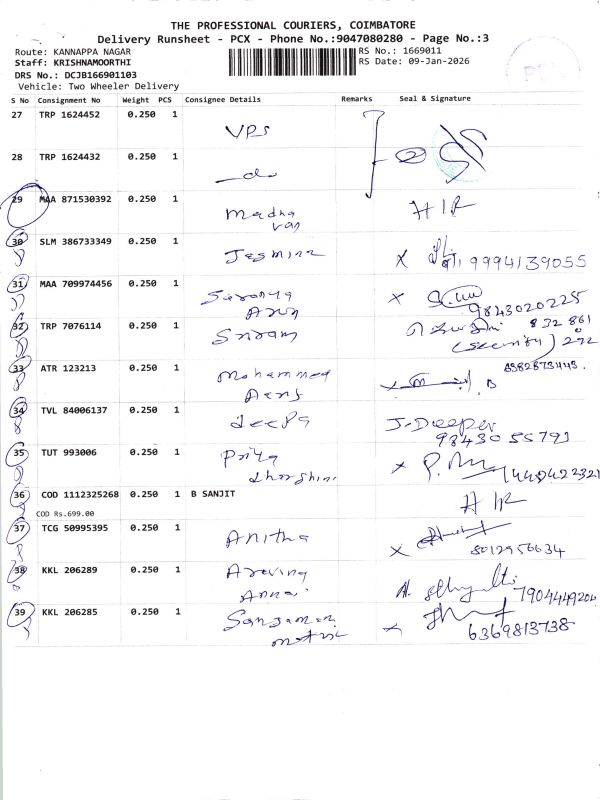 THE PROFESSIONAL COURIERS, COIMBATORE
Delivery Runsheet - PCX - Phone No.:9047080280 - Page No.:3
Route: KANNAPPA NAGAR RS No.: 1669011
Staff: KRISHNAMOORTHI RS Date: 09-Jan-2026
DRS No.: DCJB166901103
Vehicle: Two Wheeler Delivery
S No Consignment No Weight PCS Consignee Details Remarks Seal & Signature
27 TRP 1624452 0.250 1 VPS
28 TRP 1624432 0.250 1 do
29 MAA 871530392 0.250 1 H I R
Madha
van
30 SLM 386733349 0.250 1 Jesmine X 9994139055
31 MAA 709974456 0.250 1 Saranya X
Arun 9843020225
32 TRP 7076114 0.250 1 Sriram 832 861
(Security) 292
33 ATR 123213 0.250 1 Mohammed
34 TVL 84006137 0.250 1 deepa J. Deeper
98430 55791
35 TUT 993006 0.250 1 Priya X
dharshini
36 COD 1112325268 0.250 1 B SANJIT H I R
COD Rs.699.00
37 TCG 50995395 0.250 1 Anitha X
8012956634
38 KKL 206289 0.250 1 Aravind
Anna 7904449204
39 KKL 206285 0.250 1 X
6369813738